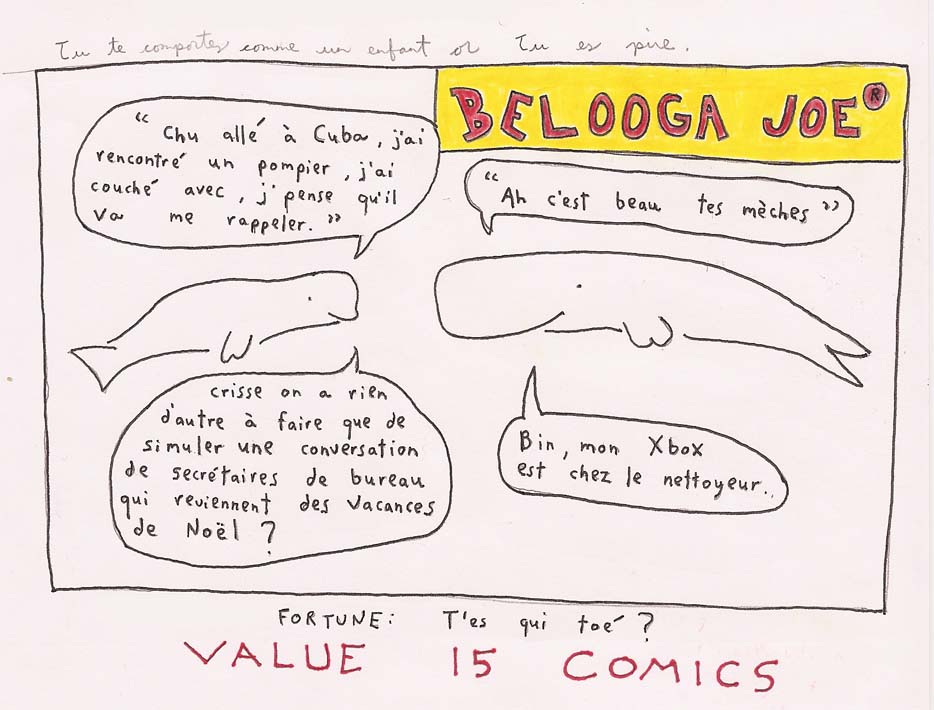 Tu te comportes comme un enfant or Tu es pire.
BELOOGA JOE®
“ Chu allé à Cuba, j'ai
rencontré un pompier, j'ai
couché avec, j'pense qu'il
va me rappeler. ”
“ Ah c'est beau tes mèches ”
crisse on a rien
d'autre à faire que de
simuler une conversation
de secrétaires de bureau
qui reviennent des vacances
de Noël ?
Bin, mon Xbox
est chez le nettoyeur..
FORTUNE: T'es qui toé ?
VALUE 15 COMICS